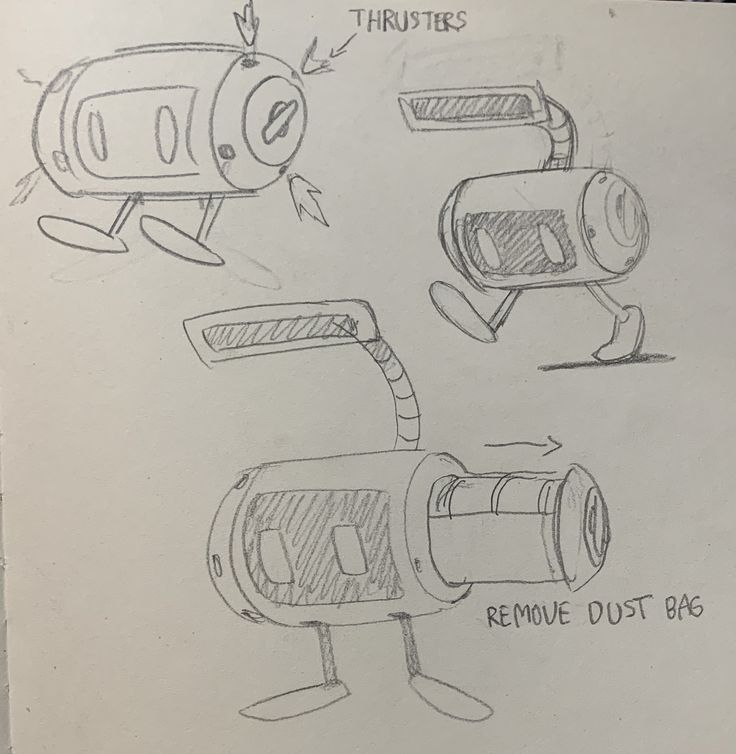 THRUSTERS
REMOVE DUST BAG